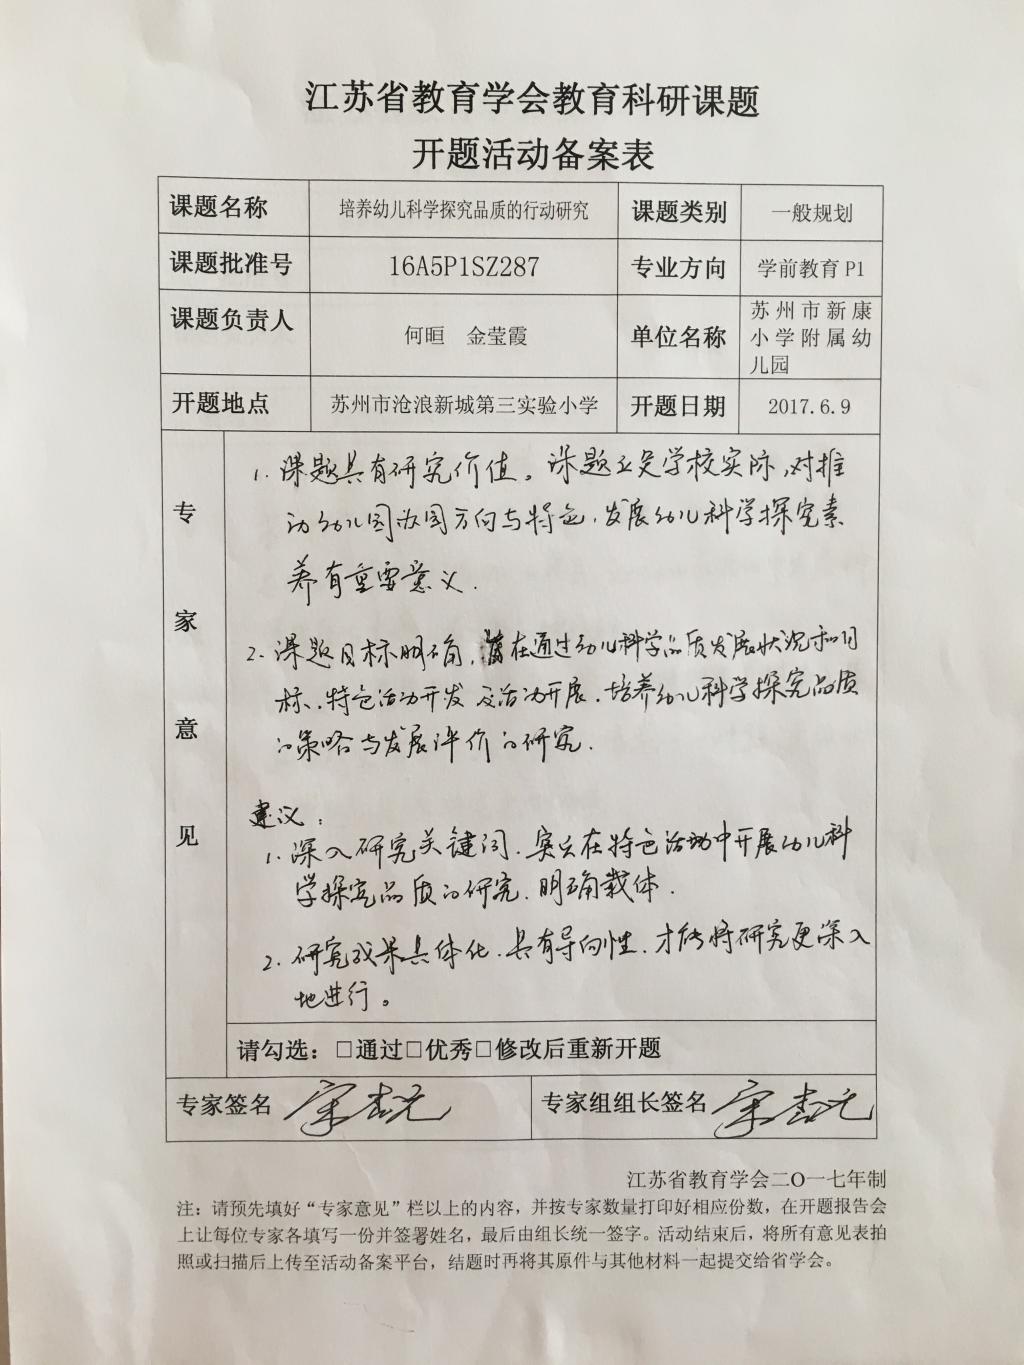 江苏省教育学会教育科研课题
开题活动备案表
课题名称 培养幼儿科学探究品质的行动研究 课题类别 一般规划
课题批准号 16A5P1SZ287 专业方向 学前教育 P1
课题负责人 何晅 金莹霞 单位名称 苏州市新康
小学附属幼
儿园
开题地点 苏州市沧浪新城第三实验小学 开题日期 2017.6.9
专家意见
1. 课题具有研究价值。课题立足学校实际,对推
动幼儿园办园方向与特色,发展幼儿科学探究素
养有重要意义.
2. 课题目标明确,在通过幼儿科学品质发展状况和目
标、特色活动开发及活动开展.培养幼儿科学探究品质
的策略与发展评价的研究.
建议:
1. 深入研究关键词.突出在特色活动中开展幼儿科
学探究品质的研究.明确载体.
2. 研究成果具体化.具有导向性.才能将研究更深入
地进行。
请勾选:□通过□优秀□修改后重新开题
专家签名 专家组组长签名
江苏省教育学会二O一七年制
注:请预先填好“专家意见”栏以上的内容,并按专家数量打印好相应份数,在开题报告会
上让每位专家各填写一份并签署姓名,最后由组长统一签字。活动结束后,将所有意见表拍
照或扫描后上传至活动备案平台,结题时再将其原件与其他材料一起提交给省学会。